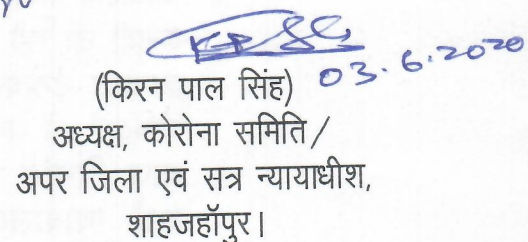 03.6.2020
(किरन पाल सिंह)
अध्यक्ष, कोरोना समिति /
अपर जिला एवं सत्र न्यायाधीश,
शाहजहॉपुर।